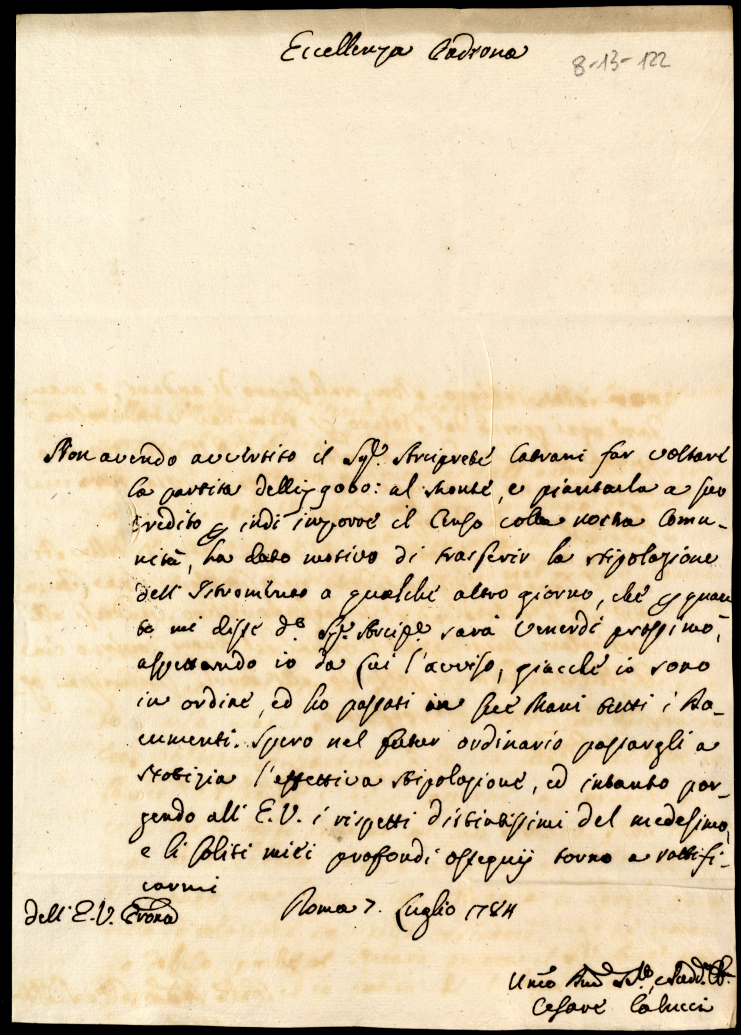 Eccellenza Padrona
8-13-122
Non avendo avvertito il Sig.r Arciprete Catrani far voltare
la partita delli 9000: al Monte, e piantarla a suo
credito p indi imporre il Censo colla nostra Comu-
nità, ha dato motivo di trasferir la stipolazione
dell' Istromento a qualche altro giorno, che p quan
to mi disse d.o Sig.r Arcip.e sarà Venerdì prossimo,
aspettando io da Lui l'avviso, giacché io sono
in ordine, ed ho passati in sue Mani tutti i Do-
cumenti. Spero nel futur ordinario passargli a
Notizia l'effettiva stipolazione, ed intanto por-
gendo all' E.V. i rispetti distintissimi del medesimo,
e li soliti miei profondi ossequij torno a rattifi-
carmi
dell' E.V. Prona
Roma 7. Luglio 1784
Um̃o
Cesare Colucci